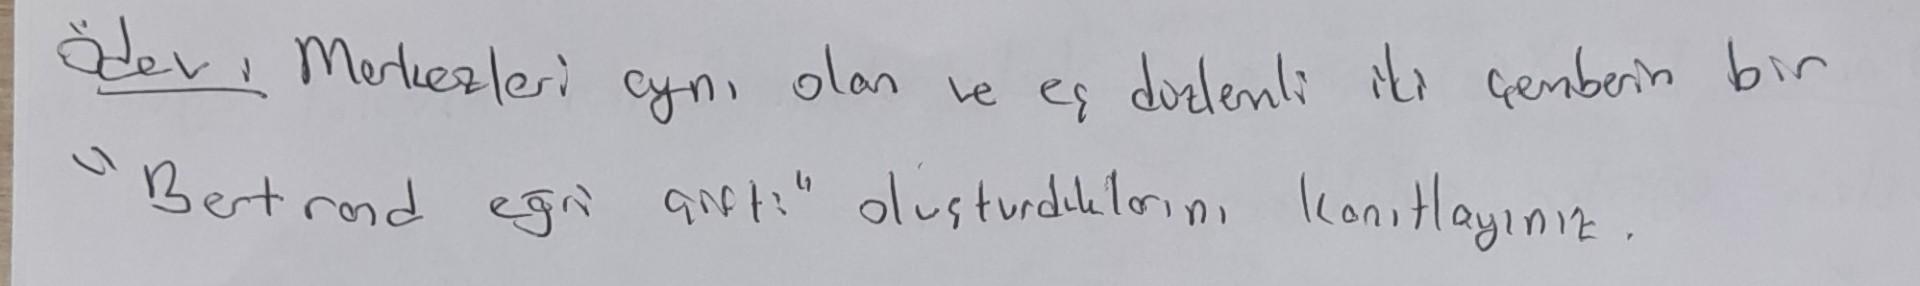 Ödev, Merkezleri aynı olan ve eş düzlemli iki çemberin bir
"Bertrand eğri çifti" oluşturduklarını kanıtlayınız.